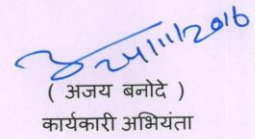 24/11/2016
( अजय बनोदे )
कार्यकारी अभियंता